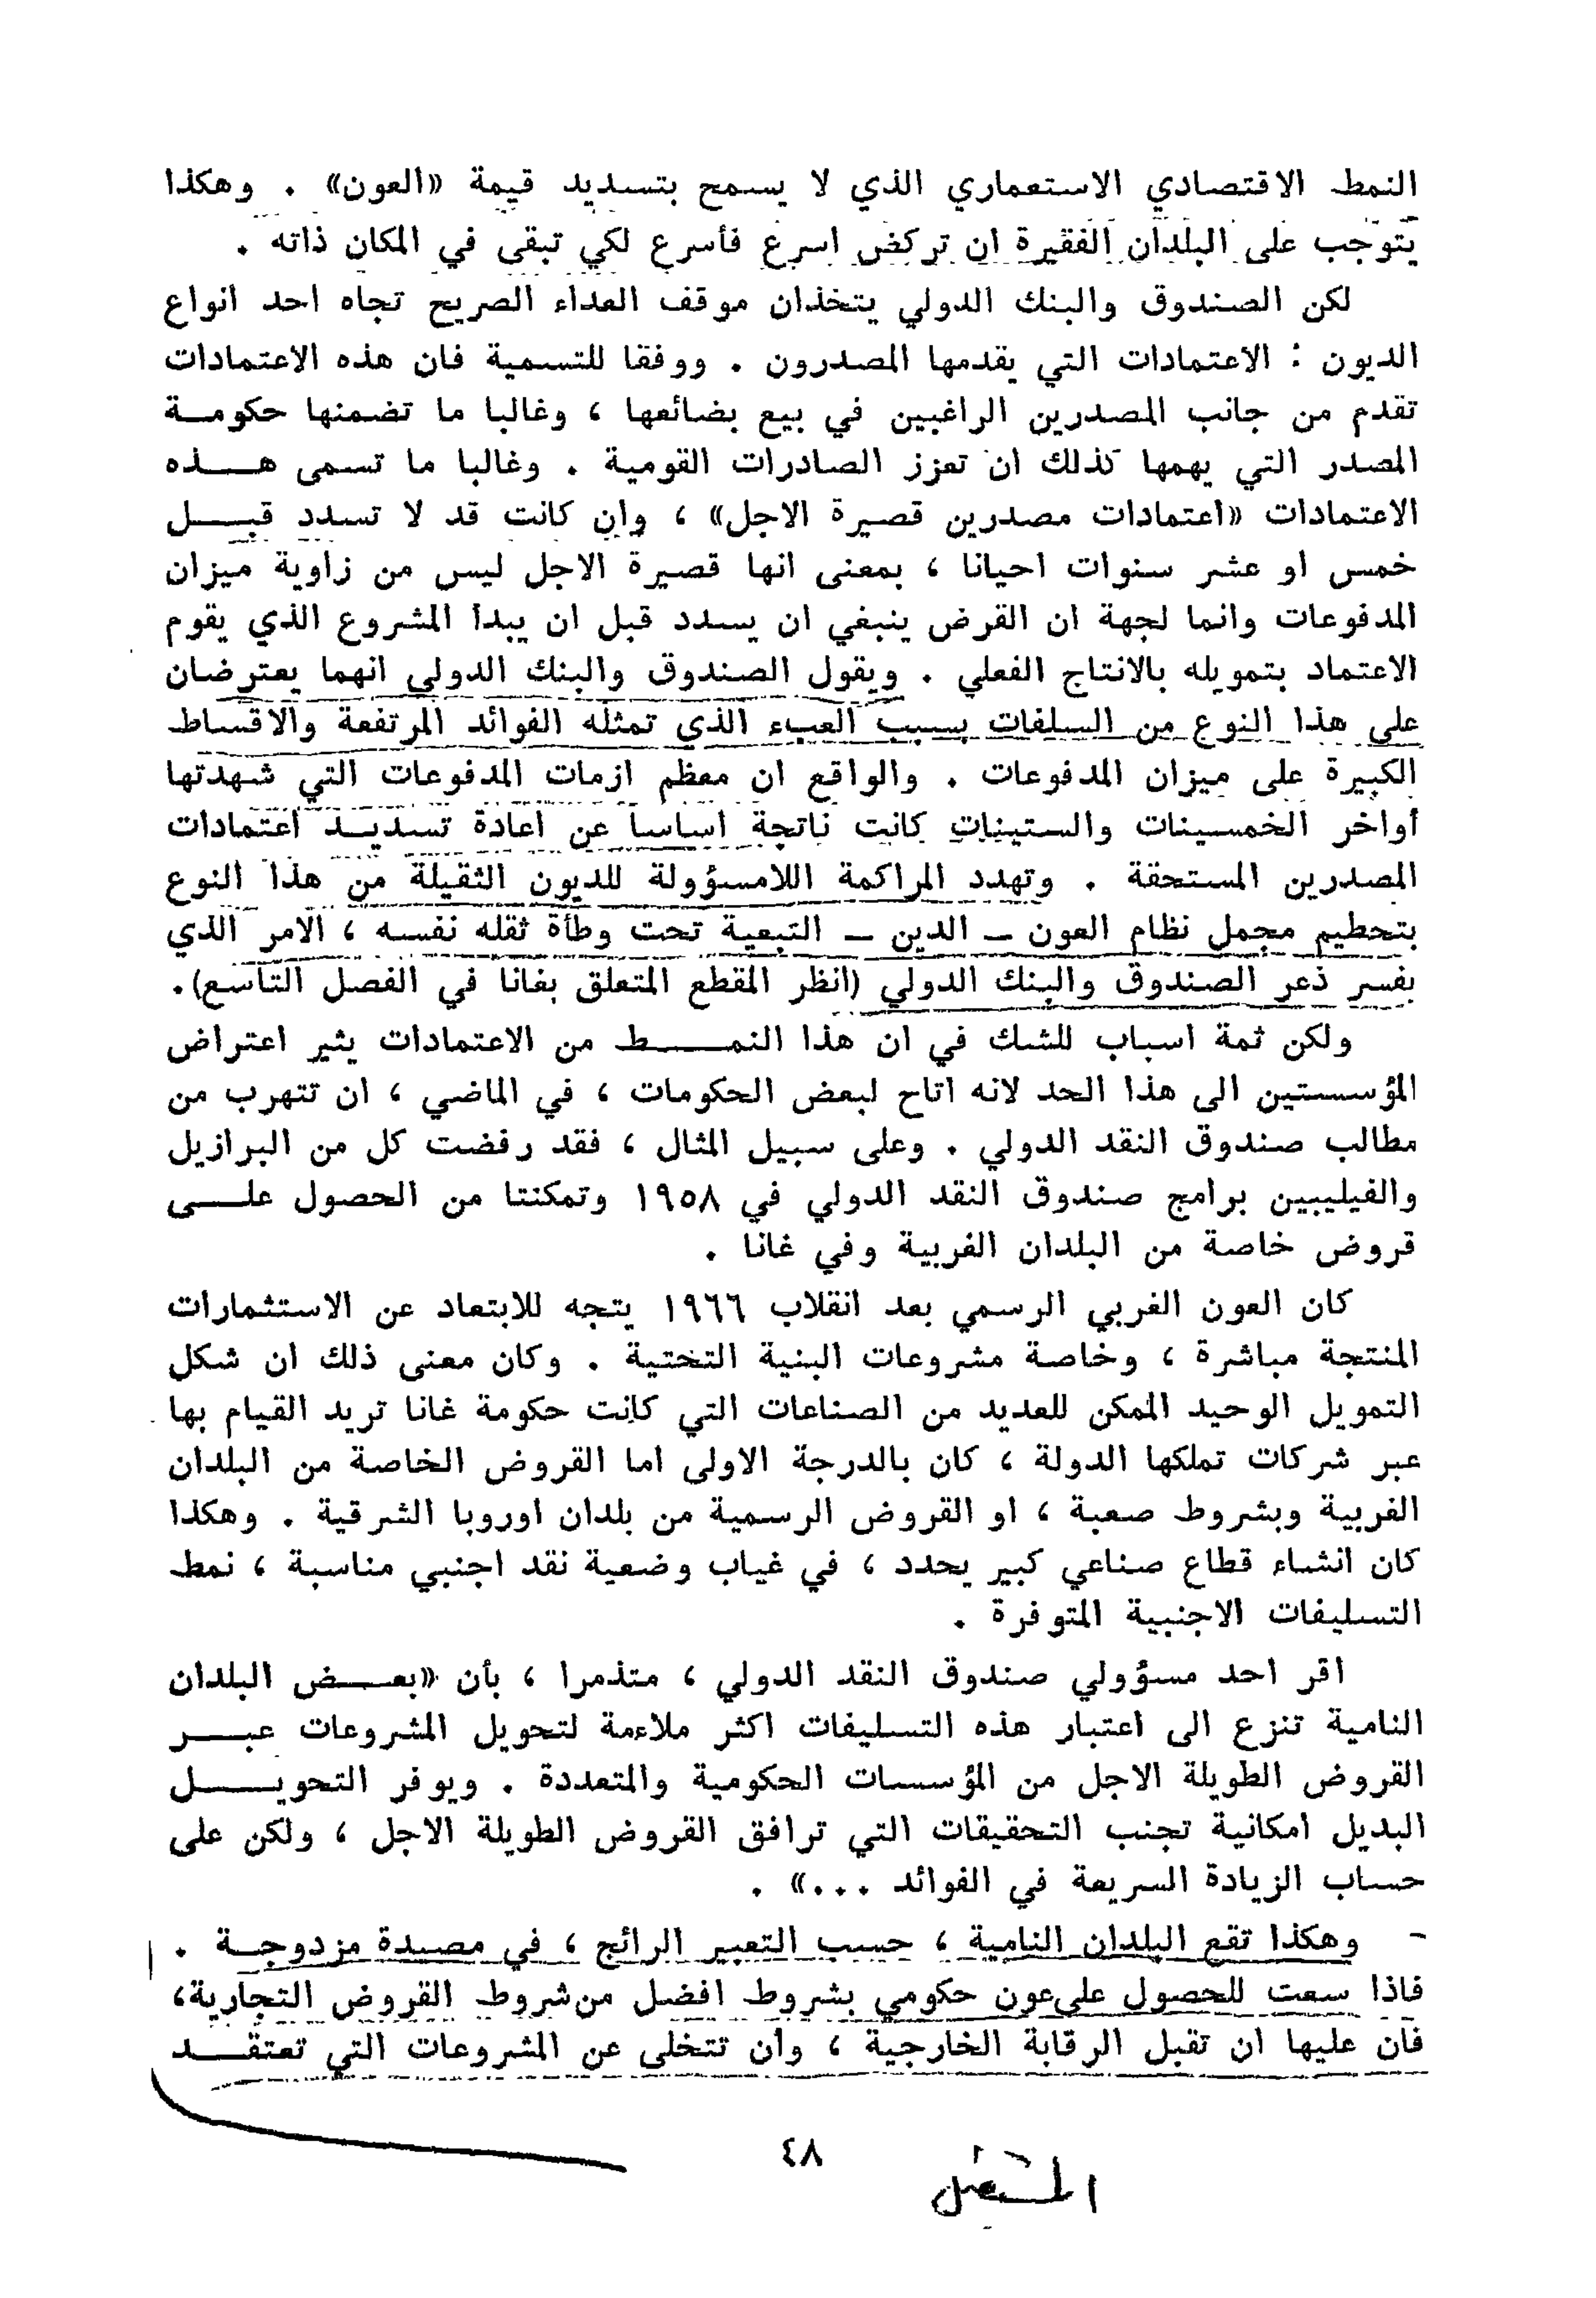 النمط الاقتصادي الاستعماري الذي لا يسمح بتسديد قيمة «العون» . وهكذا
يتوجب على البلدان الفقيرة ان تركض اسرع فأسرع لكي تبقى في المكان ذاته .
لكن الصندوق والبنك الدولي يتخذان موقف العداء الصريح تجاه احد انواع
الديون : الاعتمادات التي يقدمها المصدرون . ووفقا للتسمية فان هذه الاعتمادات
تقدم من جانب المصدرين الراغبين في بيع بضائعها ، وغالبا ما تضمنها حكومــة
المصدر التي يهمها كذلك ان تعزز الصادرات القومية . وغالبا ما تسمى هــذه
الاعتمادات «اعتمادات مصدرين قصيرة الاجل» ، وان كانت قد لا تسدد قبــل
خمس او عشر سنوات احيانا ، بمعنى انها قصيرة الاجل ليس من زاوية ميزان
المدفوعات وانما لجهة ان القرض ينبغي ان يسدد قبل ان يبدأ المشروع الذي يقوم
الاعتماد بتمويله بالانتاج الفعلي . ويقول الصندوق والبنك الدولي انهما يعترضان
على هذا النوع من السلفات بسبب العبء الذي تمثله الفوائد المرتفعة والاقساط
الكبيرة على ميزان المدفوعات . والواقع ان معظم ازمات المدفوعات التي شهدتها
أواخر الخمسينات والستينات كانت ناتجة اساسا عن اعادة تسديــد اعتمادات
المصدرين المستحقة . وتهدد المراكمة اللامسؤولة للديون الثقيلة من هذا النوع
بتحطيم مجمل نظام العون – الدين – التبعية تحت وطأة ثقله نفسه ، الامر الذي
يفسر ذعر الصندوق والبنك الدولي (انظر المقطع المتعلق بغانا في الفصل التاسع).
ولكن ثمة اسباب للشك في ان هذا النمــط من الاعتمادات يثير اعتراض
المؤسستين الى هذا الحد لانه اتاح لبعض الحكومات ، في الماضي ، ان تتهرب من
مطالب صندوق النقد الدولي . وعلى سبيل المثال ، فقد رفضت كل من البرازيل
والفيليبين برامج صندوق النقد الدولي في ١٩٥٨ وتمكنتا من الحصول علــى
قروض خاصة من البلدان الغربية وفي غانا .
كان العون الغربي الرسمي بعد انقلاب ١٩٦٦ يتجه للابتعاد عن الاستثمارات
المنتجة مباشرة ، وخاصة مشروعات البنية التختية . وكان معنى ذلك ان شكل
التمويل الوحيد الممكن للعديد من الصناعات التي كانت حكومة غانا تريد القيام بها
عبر شركات تملكها الدولة ، كان بالدرجة الاولى اما القروض الخاصة من البلدان
الغربية وبشروط صعبة ، او القروض الرسمية من بلدان اوروبا الشرقية . وهكذا
كان انشاء قطاع صناعي كبير يحدد ، في غياب وضعية نقد اجنبي مناسبة ، نمط
التسليفات الاجنبية المتوفرة .
اقر احد مسؤولي صندوق النقد الدولي ، متذمرا ، بأن «بعــض البلدان
النامية تنزع الى اعتبار هذه التسليفات اكثر ملاءمة لتحويل المشروعات عبــر
القروض الطويلة الاجل من المؤسسات الحكومية والمتعددة . ويوفر التحويــل
البديل امكانية تجنب التحقيقات التي ترافق القروض الطويلة الاجل ، ولكن على
حساب الزيادة السريعة في الفوائد ...» .
- وهكذا تقع البلدان النامية ، حسب التعبير الرائج ، في مصيدة مزدوجــة .
فاذا سعت للحصول على عون حكومي بشروط افضل من شروط القروض التجارية،
فان عليها ان تقبل الرقابة الخارجية ، وان تتخلى عن المشروعات التي تعتقــد
٤٨